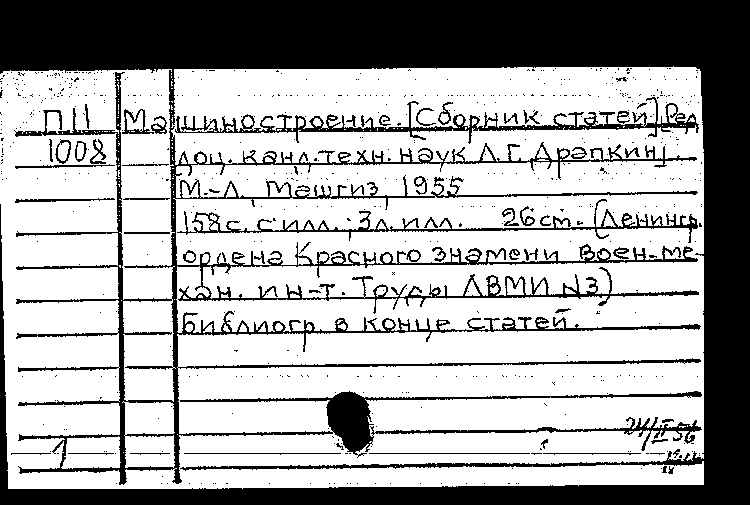 П11 Машиностроение. [Сборник статей] Ред.
1008 доц. канд. техн. наук Л.Г. Драпкин].
М.-Л., Машгиз, 1955
158с. с илл.; 3л. илл. 26см. (Ленингр.
ордена Красного знамени воен.-ме-
хан. ин-т. Труды ЛВМИ №3)
Библиогр. в конце статей.
1 24/II 56